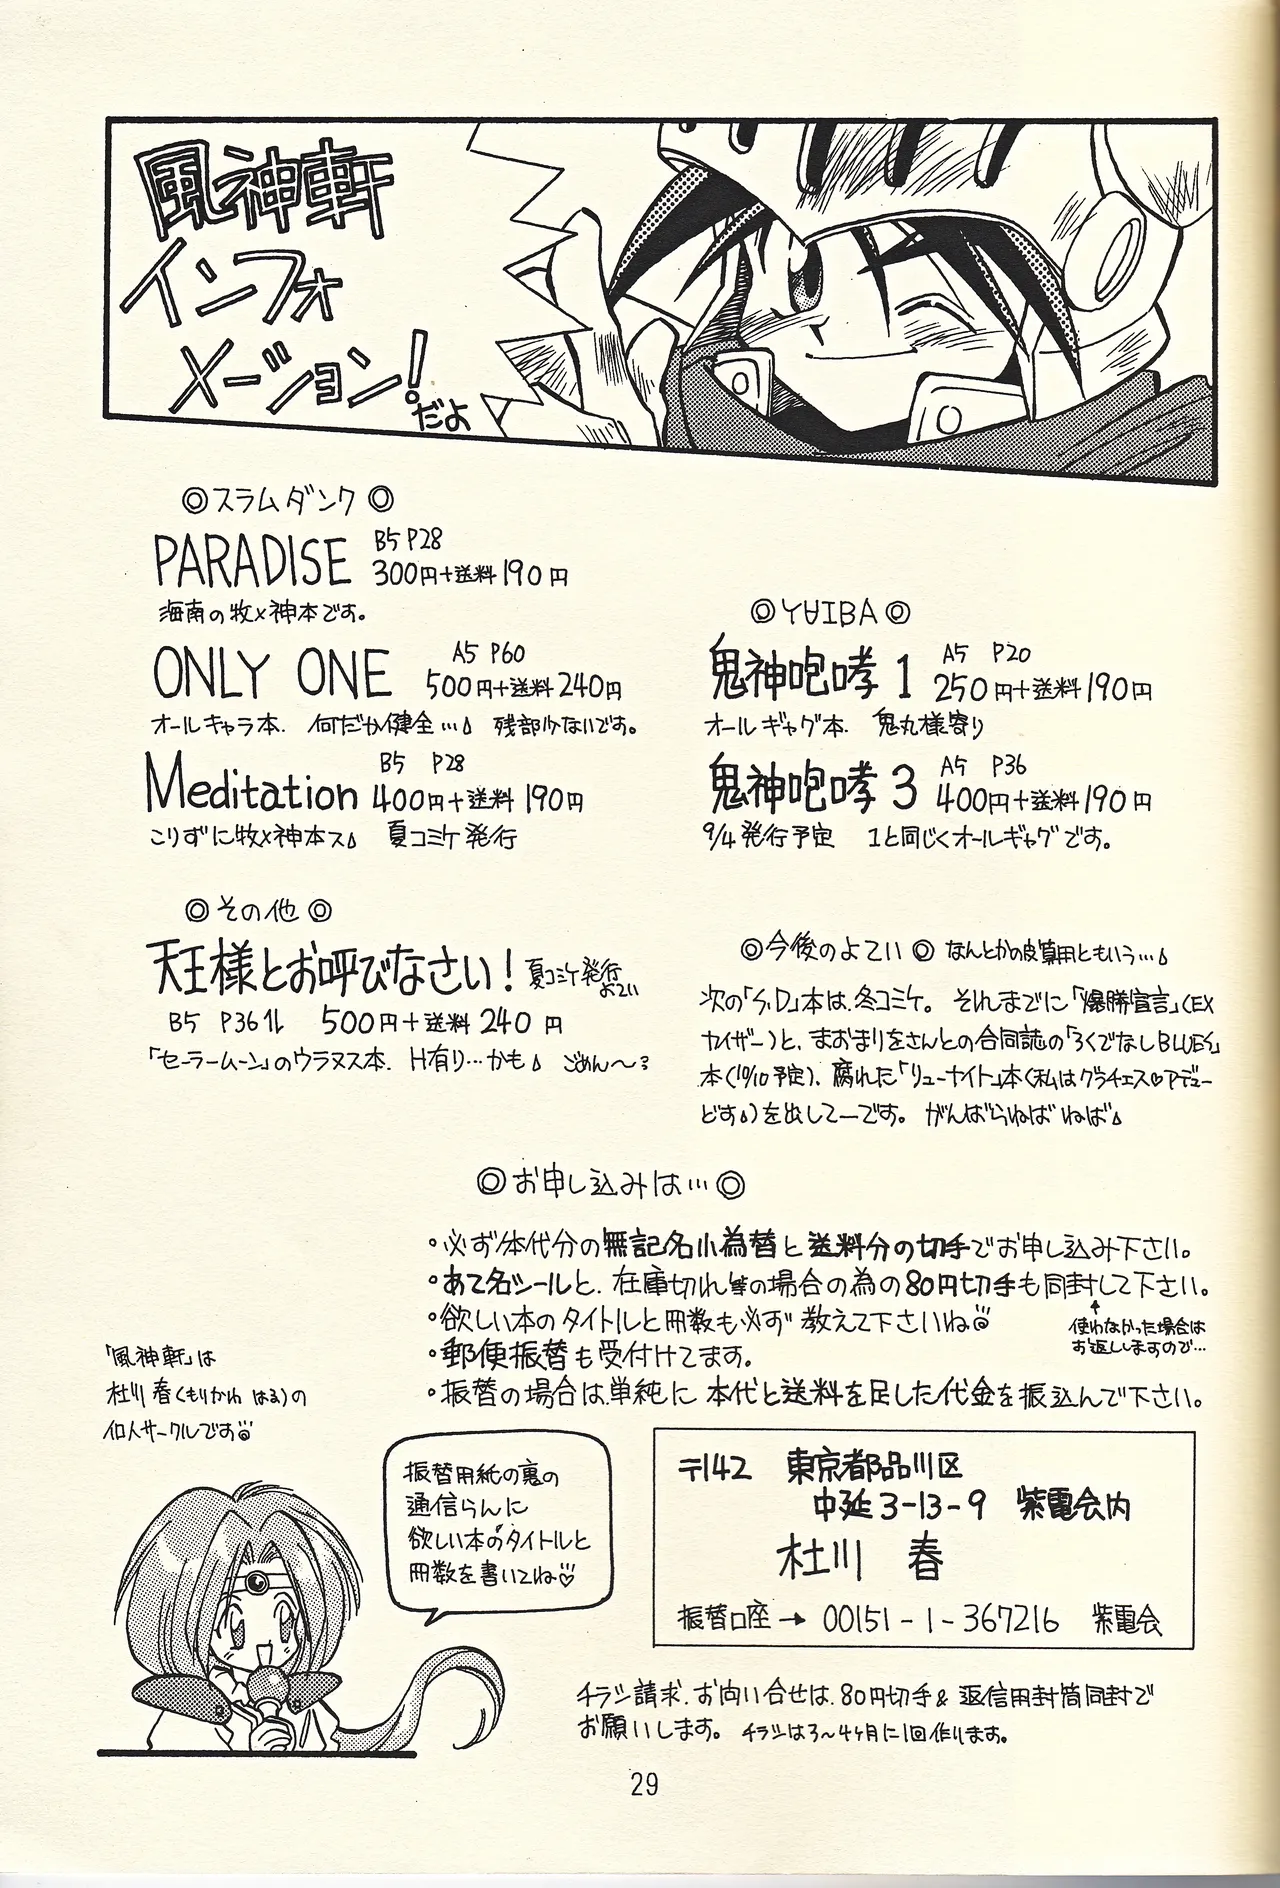 風神軒
インフォ
メーション!
だよ
◎スラムダンク◎
PARADISE B5 P28
300円+送料190円
海南の牧×神本です。
ONLY ONE A5 P60
500円+送料240円
オールキャラ本. 何だか健全… 残部少ないです。
Meditation B5 P28
400円+送料190円
こりずに牧×神本ス 夏コミケ発行
◎YAIBA◎
鬼神咆哮1 A5 P20
250円+送料190円
オールギャグ本. 鬼丸様寄り
鬼神咆哮3 A5 P36
400円+送料190円
9/4発行予定 1と同じくオールギャグです。
◎その他◎
天王様とお呼びなさい! 夏コミケ発行
よてい
B5 P36 500円+送料240円
「セーラームーン」のウラヌス本. H有り…かも ごめん〜
◎今後のよてい◎ なんとかの皮算用ともいう…
次の「S,D」本は.冬コミケ。それまでに「爆勝宣言」(EX
カイザー)と、まおまりをさんとの合同誌の「ろくでなしBLUES」
本(10/10予定)、腐れた「リューナイト」本(私はグラチェス♡アデュー
どす)を出してーです。 がんばらねばねば
◎お申し込みは…◎
・必ず本代分の無記名小為替と送料分の切手でお申し込み下さい。
・あて名シールと、在庫切れ等の場合の為の80円切手も同封して下さい。
使わなかった場合は
お返ししますので…
・欲しい本のタイトルと冊数も必ず教えて下さいね
・郵便振替も受付けてます。
・振替の場合は単純に本代と送料を足した代金を振込んで下さい。
「風神軒」は
杜川春(もりかわ はる)の
個人サークルです
振替用紙の裏の
通信らんに
欲しい本のタイトルと
冊数を書いてね♡
〒142 東京都品川区
中延3-13-9 紫電会内
杜川 春
振替口座→00151-1-367216 紫電会
チラシ請求、お問い合せは、80円切手&返信用封筒同封で
お願いします。 チラシは3〜4ヶ月に1回作ります。
29